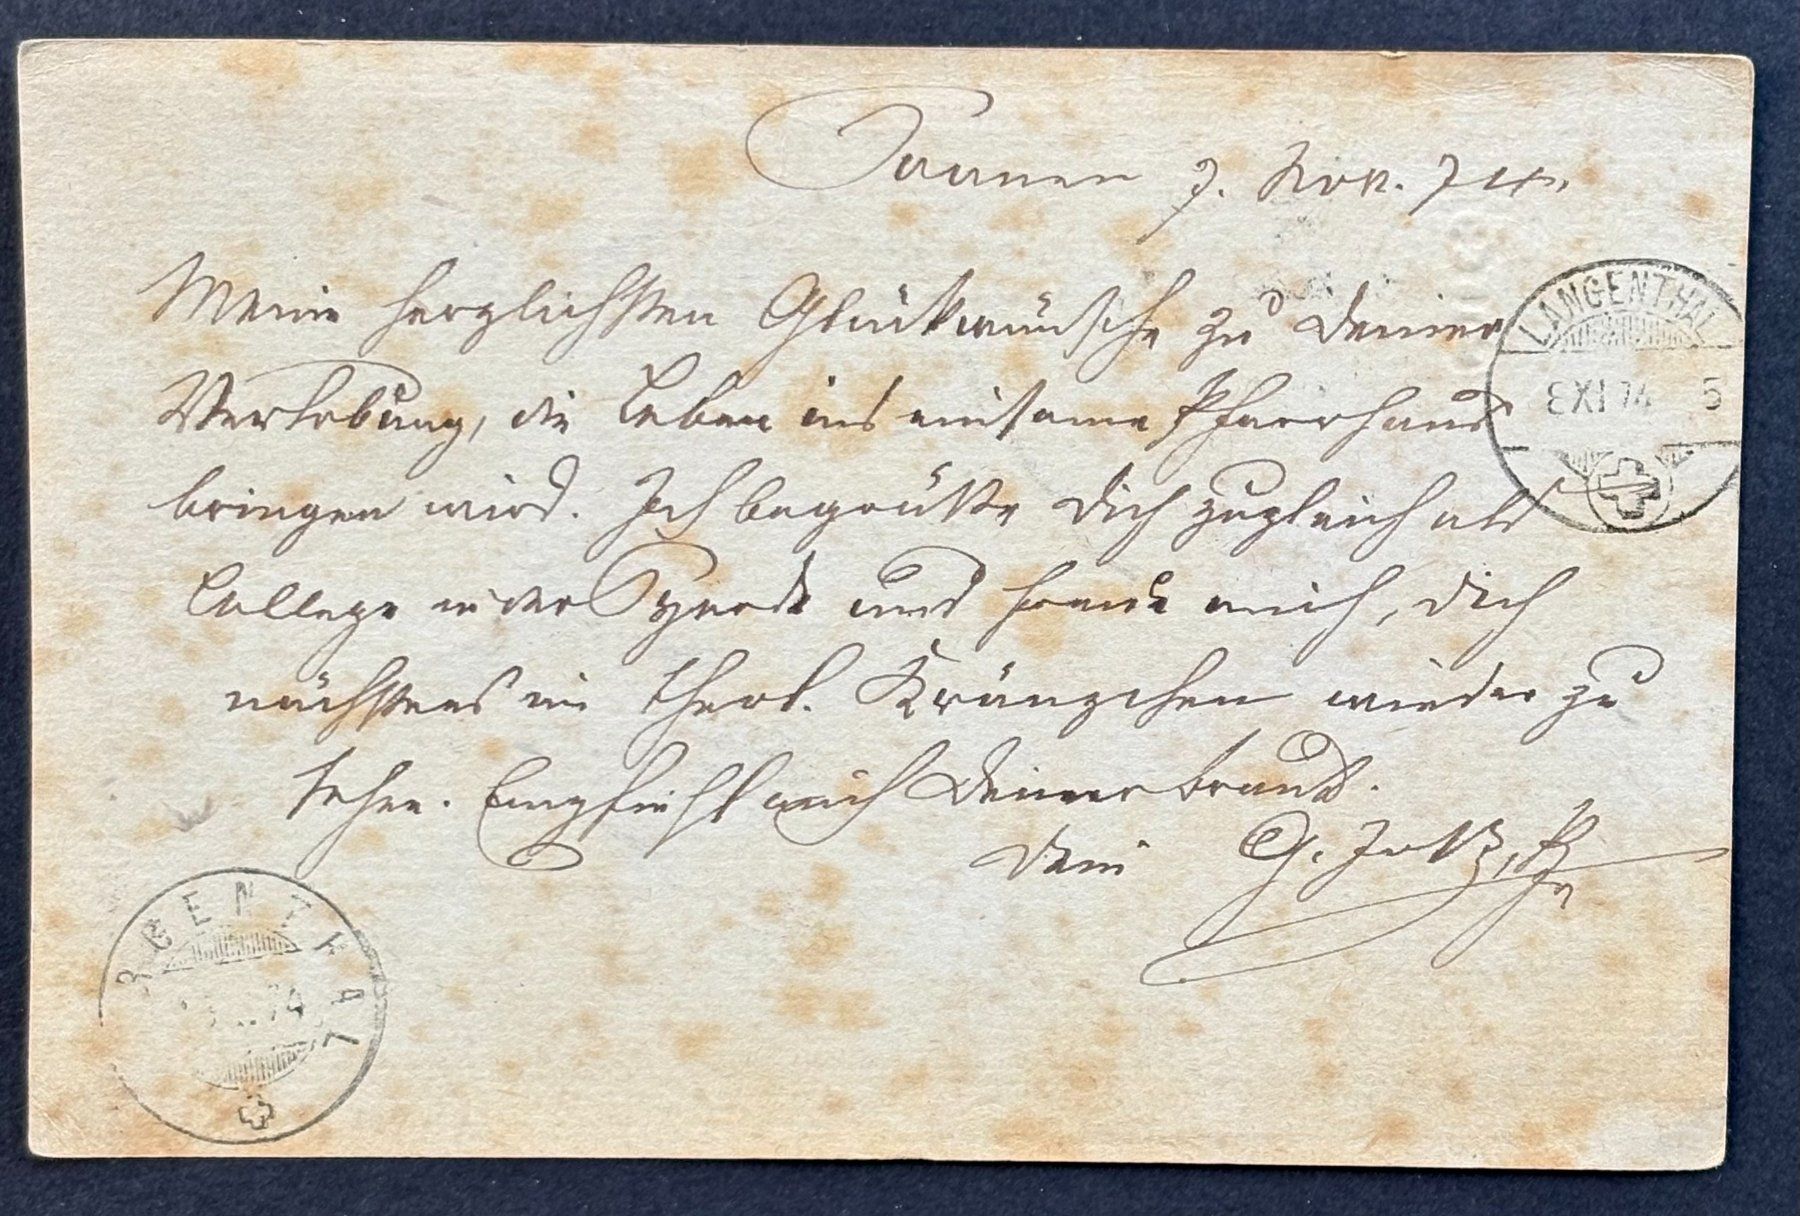 Saanen 7. Nov. 74.
Meine herzlichsten Glückwünsche zu Deiner
LANGENTHAL
Verlobung, die Leben ins einsame Pfarrhaus
8 XI 74 5
bringen wird. Ich begrüße Dich zugleich als
College in der Synode und freue mich, Dich
nächstens im theol. Kränzchen wieder zu
sehen. Empfiehl mich Deiner Braut.
Dein G.
GENTHAL
74